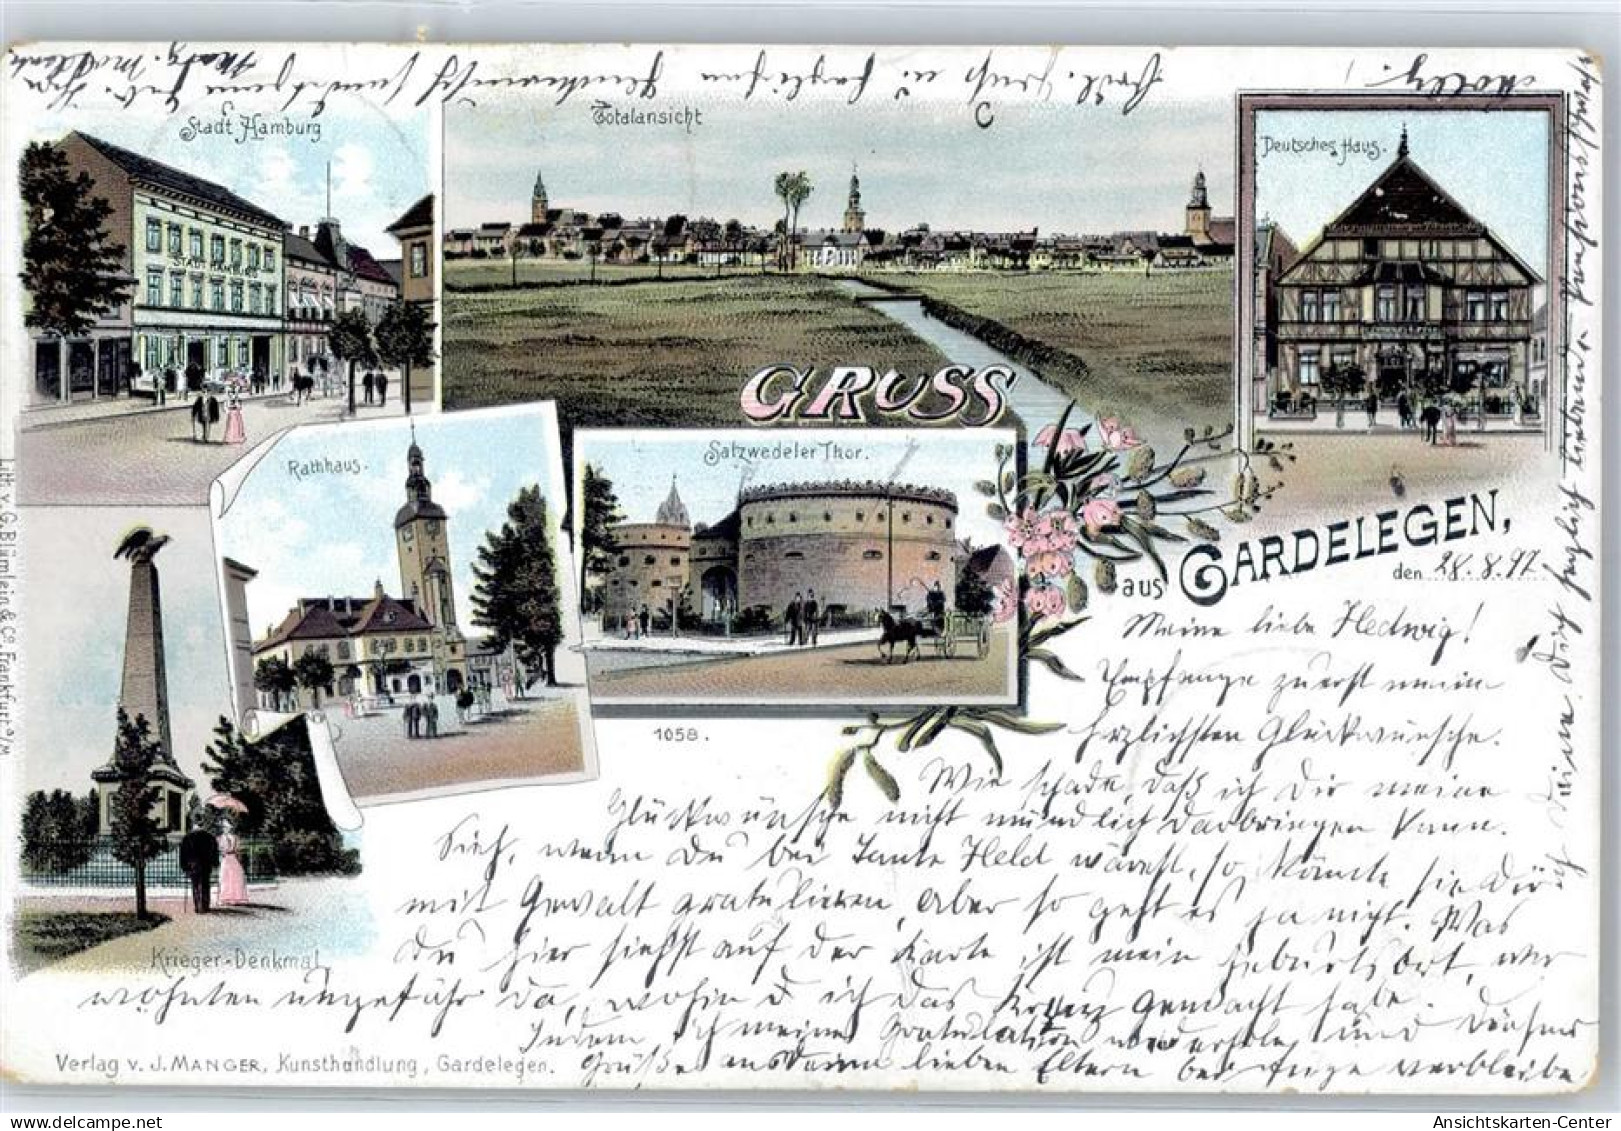 Stadt Hamburg
STADT HAMBURG
Totalansicht
C
Deutsches Haus.
GRUSS
Rathhaus.
Salzwedeler Thor.
aus GARDELEGEN,
den 28.8.97
Meine liebe Hedwig!
Empfange zuerst meine
herzlichsten Glückwünsche.
Wie schade, daß ich Dir meine
Glückwünsche nicht mündlich darbringen kann.
Sieh, wenn Du bei Tante Held wärest, so könnte sie Dir
mit Gewalt gratulieren, aber so geht es ja nicht. Was
Du hier siehst auf der Karte ist mein Geburtsort, wir
wohnten ungefähr da, wohin ich das Kreuz gemacht habe.
Indem ich meine Gratulation wiederhole und
Grüße an Deine lieben Eltern verbleibe
Deine Dich herzlich liebende
Molly.
1058.
Krieger-Denkmal
Verlag v. J. MANGER, Kunsthandlung, Gardelegen.
Lith. v. G. Blümlein & Co. Frankfurt a/M
Ansichtskarten-Center